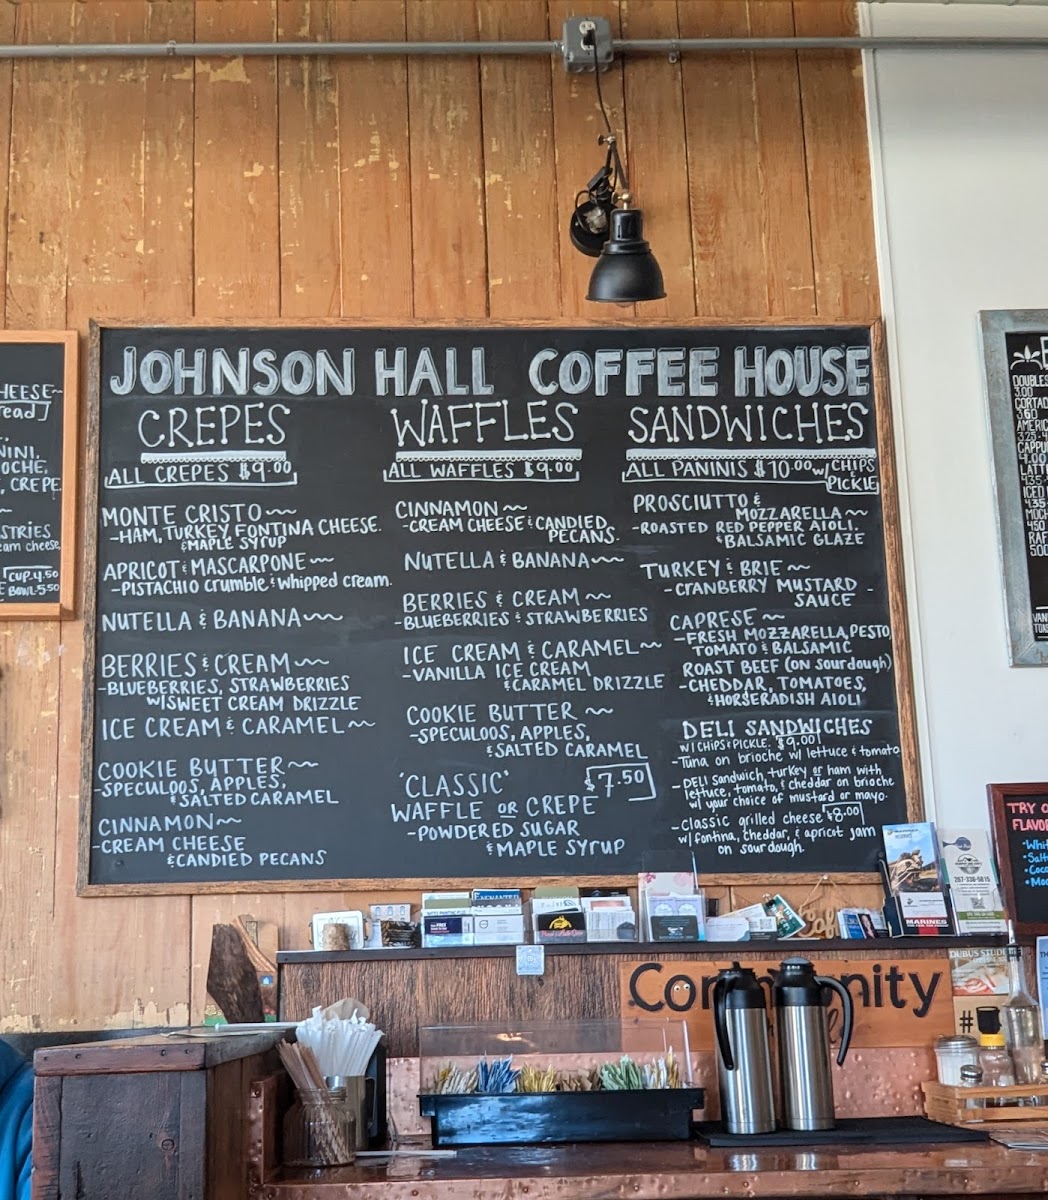 JOHNSON HALL COFFEE HOUSE
CREPES
ALL CREPES $9.00
MONTE CRISTO
-HAM, TURKEY, FONTINA CHEESE.
& MAPLE SYRUP
APRICOT & MASCARPONE
-PISTACHIO crumble & whipped cream.
NUTELLA & BANANA
BERRIES & CREAM
-BLUEBERRIES, STRAWBERRIES
w/SWEET CREAM DRIZZLE
ICE CREAM & CARAMEL
COOKIE BUTTER
-SPECULOOS, APPLES,
& SALTED CARAMEL
CINNAMON
-CREAM CHEESE
& CANDIED PECANS
WAFFLES
ALL WAFFLES $9.00
CINNAMON
-CREAM CHEESE & CANDIED
PECANS.
NUTELLA & BANANA
BERRIES & CREAM
-BLUEBERRIES & STRAWBERRIES
ICE CREAM & CARAMEL
-VANILLA ICE CREAM
& CARAMEL DRIZZLE
COOKIE BUTTER
-SPECULOOS, APPLES,
& SALTED CARAMEL
'CLASSIC' $7.50
WAFFLE OR CREPE
-POWDERED SUGAR
& MAPLE SYRUP
SANDWICHES
ALL PANINIS $10.00 w/ CHIPS
PICKLE
PROSCIUTTO &
MOZZARELLA
-ROASTED RED PEPPER AIOLI.
& BALSAMIC GLAZE
TURKEY & BRIE
-CRANBERRY MUSTARD -
SAUCE
CAPRESE
-FRESH MOZZARELLA, PESTO,
TOMATO & BALSAMIC
ROAST BEEF (ON sourdough)
-CHEDDAR, TOMATOES,
& HORSERADISH AIOLI
DELI SANDWICHES
W/ CHIPS & PICKLE. $9.00
-Tuna on brioche w/ lettuce & tomato
- DELI sandwich, turkey or ham with
lettuce, tomato, & cheddar on brioche
w/ your choice of mustard or mayo.
-Classic grilled cheese $8.00
w/ fontina, cheddar, & apricot jam
on sourdough.
HEESE
read]
NINI,
OCHE,
, CREPE.
STRIES
eam cheese,
CUP 4.50
BOWL 5.50
DOUBLES
3.00
CORTAD
3.60
AMERIC
3.25
CAPPU
4.00
LATT
4.35
ICED
4.35
MOCH
4.50
RAF
500
TRY O
FLAVOR
•Whit
•Salt
•Coco
•Moc
MARINES
207-330-5015
ENCHANTED
Com nity
#
DUBUS STUD